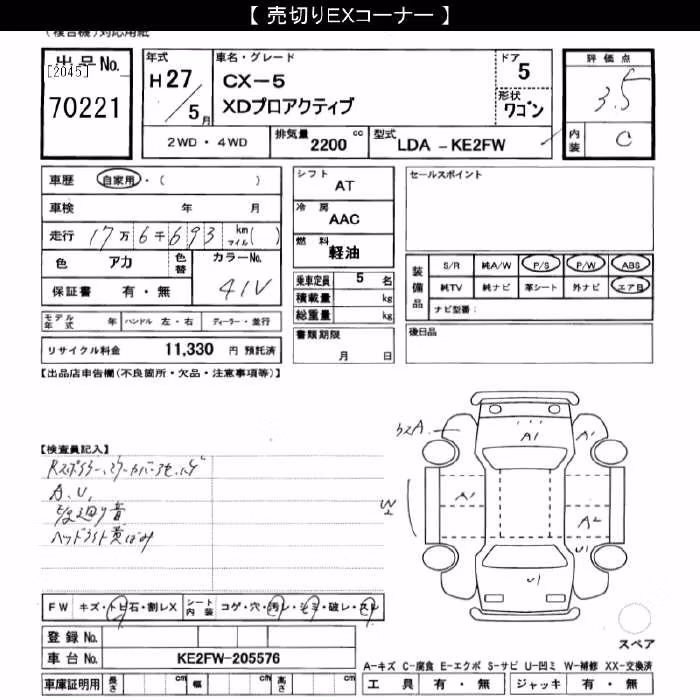 【 売切りEXコーナー 】
(複合機)対応用紙
出品No.
[2045]
70221
年式
H27/5月
車名・グレード
CX-5
XDプロアクティブ
ドア
5
形状
ワゴン
評価点
3.5
内装
C
2WD・4WD
排気量
2200 cc
型式
LDA -KE2FW
車歴 自家用・( )
車検 年 月
走行 17万6千693 km マイル( )
色 アカ 色替 カラーNo. 41V
保証書 有・無
モデル年式 年 ハンドル 左・右 ディーラー・並行
リサイクル料金 11,330 円 預託済
シフト
AT
冷房
AAC
燃料
軽油
乗車定員 5 名
積載量 kg
総重量 kg
書類期限
月 日
セールスポイント
装備品
S/R 純A/W P/S P/W ABS
純TV 純ナビ 革シート 外ナビ エアB
ナビ型番:
後日品
【出品店申告欄(不良箇所・欠品・注意事項等)】
【検査員記入】
A.U,
ヘッドライト黄ばみ
A1
A1
A1
A2
W2
U1
U1
FW キズ・トビ石・割レX シート内装 コゲ・穴・汚レ・シミ・破レ・スレ
登録No.
車台No. KE2FW-205576
車庫証明用 長さ cm 幅 cm 高さ cm
スペア
A-キズ C-腐食 E-エクボ S-サビ U-凹ミ W-補修 XX-交換済
工具 有・無 ジャッキ 有・無